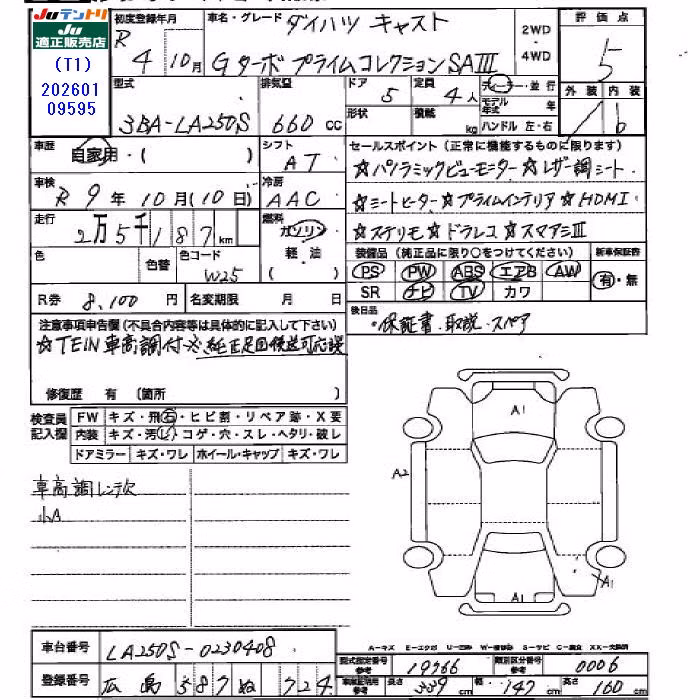 Juテントリ
Ju
適正販売店
(T1)
202601
09595
初度登録年月
R
4 10月
車名・グレード
ダイハツ キャスト
Gターボ プライムコレクション SAⅢ
2WD
・
4WD
評価点
5
型式
3BA-LA250S
排気量
660 cc
ドア
5
定員
4人
ディーラー・並行
モデル年式 年
形状
積載 kg
ハンドル 左・右
外装 内装
b
車歴
自家用・( )
シフト
AT
セールスポイント(正常に機能するものに限ります)
☆パノラミックビューモニター☆レザー調シート
☆シートヒーター☆プライムインテリア☆HDMI
☆ステリモ☆ドラレコ☆スマアシⅢ
車検
R 9年 10月(10日)
冷房
AAC
走行
2万5千187km
燃料
ガソリン
軽・油
( )
色
色替
色コード
W25
装備品 (純正品に限り○をつけてください)
新車保証書
PS PW ABS エアB AW
SR ナビ TV カワ
有・無
R券 8,100円
名変期限 月 日
後日品
・保証書・取説・スペア
注意事項申告欄(不具合内容等は具体的に記入して下さい)
☆TEIN車高調付※純正足回後送可応談
修復歴 有 (箇所 )
検査員
記入欄
FW キズ・飛石・ヒビ割・リペア跡・X要
内装 キズ・汚れ・コゲ・穴・スレ・ヘタリ・破レ
ドアミラー キズ・ワレ ホイール・キャップ キズ・ワレ
車高調レンチ欠
小A
A1
A2
A1
A1
車台番号
LA250S-0230408
A－キズ E－エクボ U－凹み W－補修跡 S－サビ C－腐食 XX－交換済
登録番号
広島 587 ぬ 724
型式指定番号
参考
19766
類別区分番号
参考
0006
車両証明用
参考
長さ
339 cm
幅
147 cm
高さ
160 cm